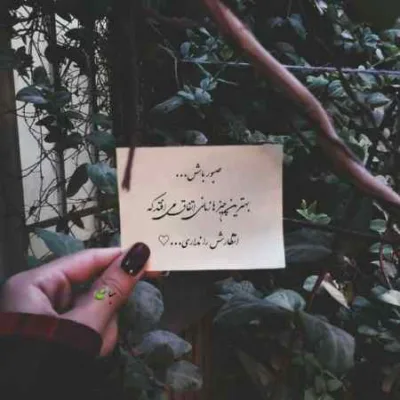 صبور باش...
بهترین چیزها زمانی اتفاق می افتد که
انتظارش را نداری...♡